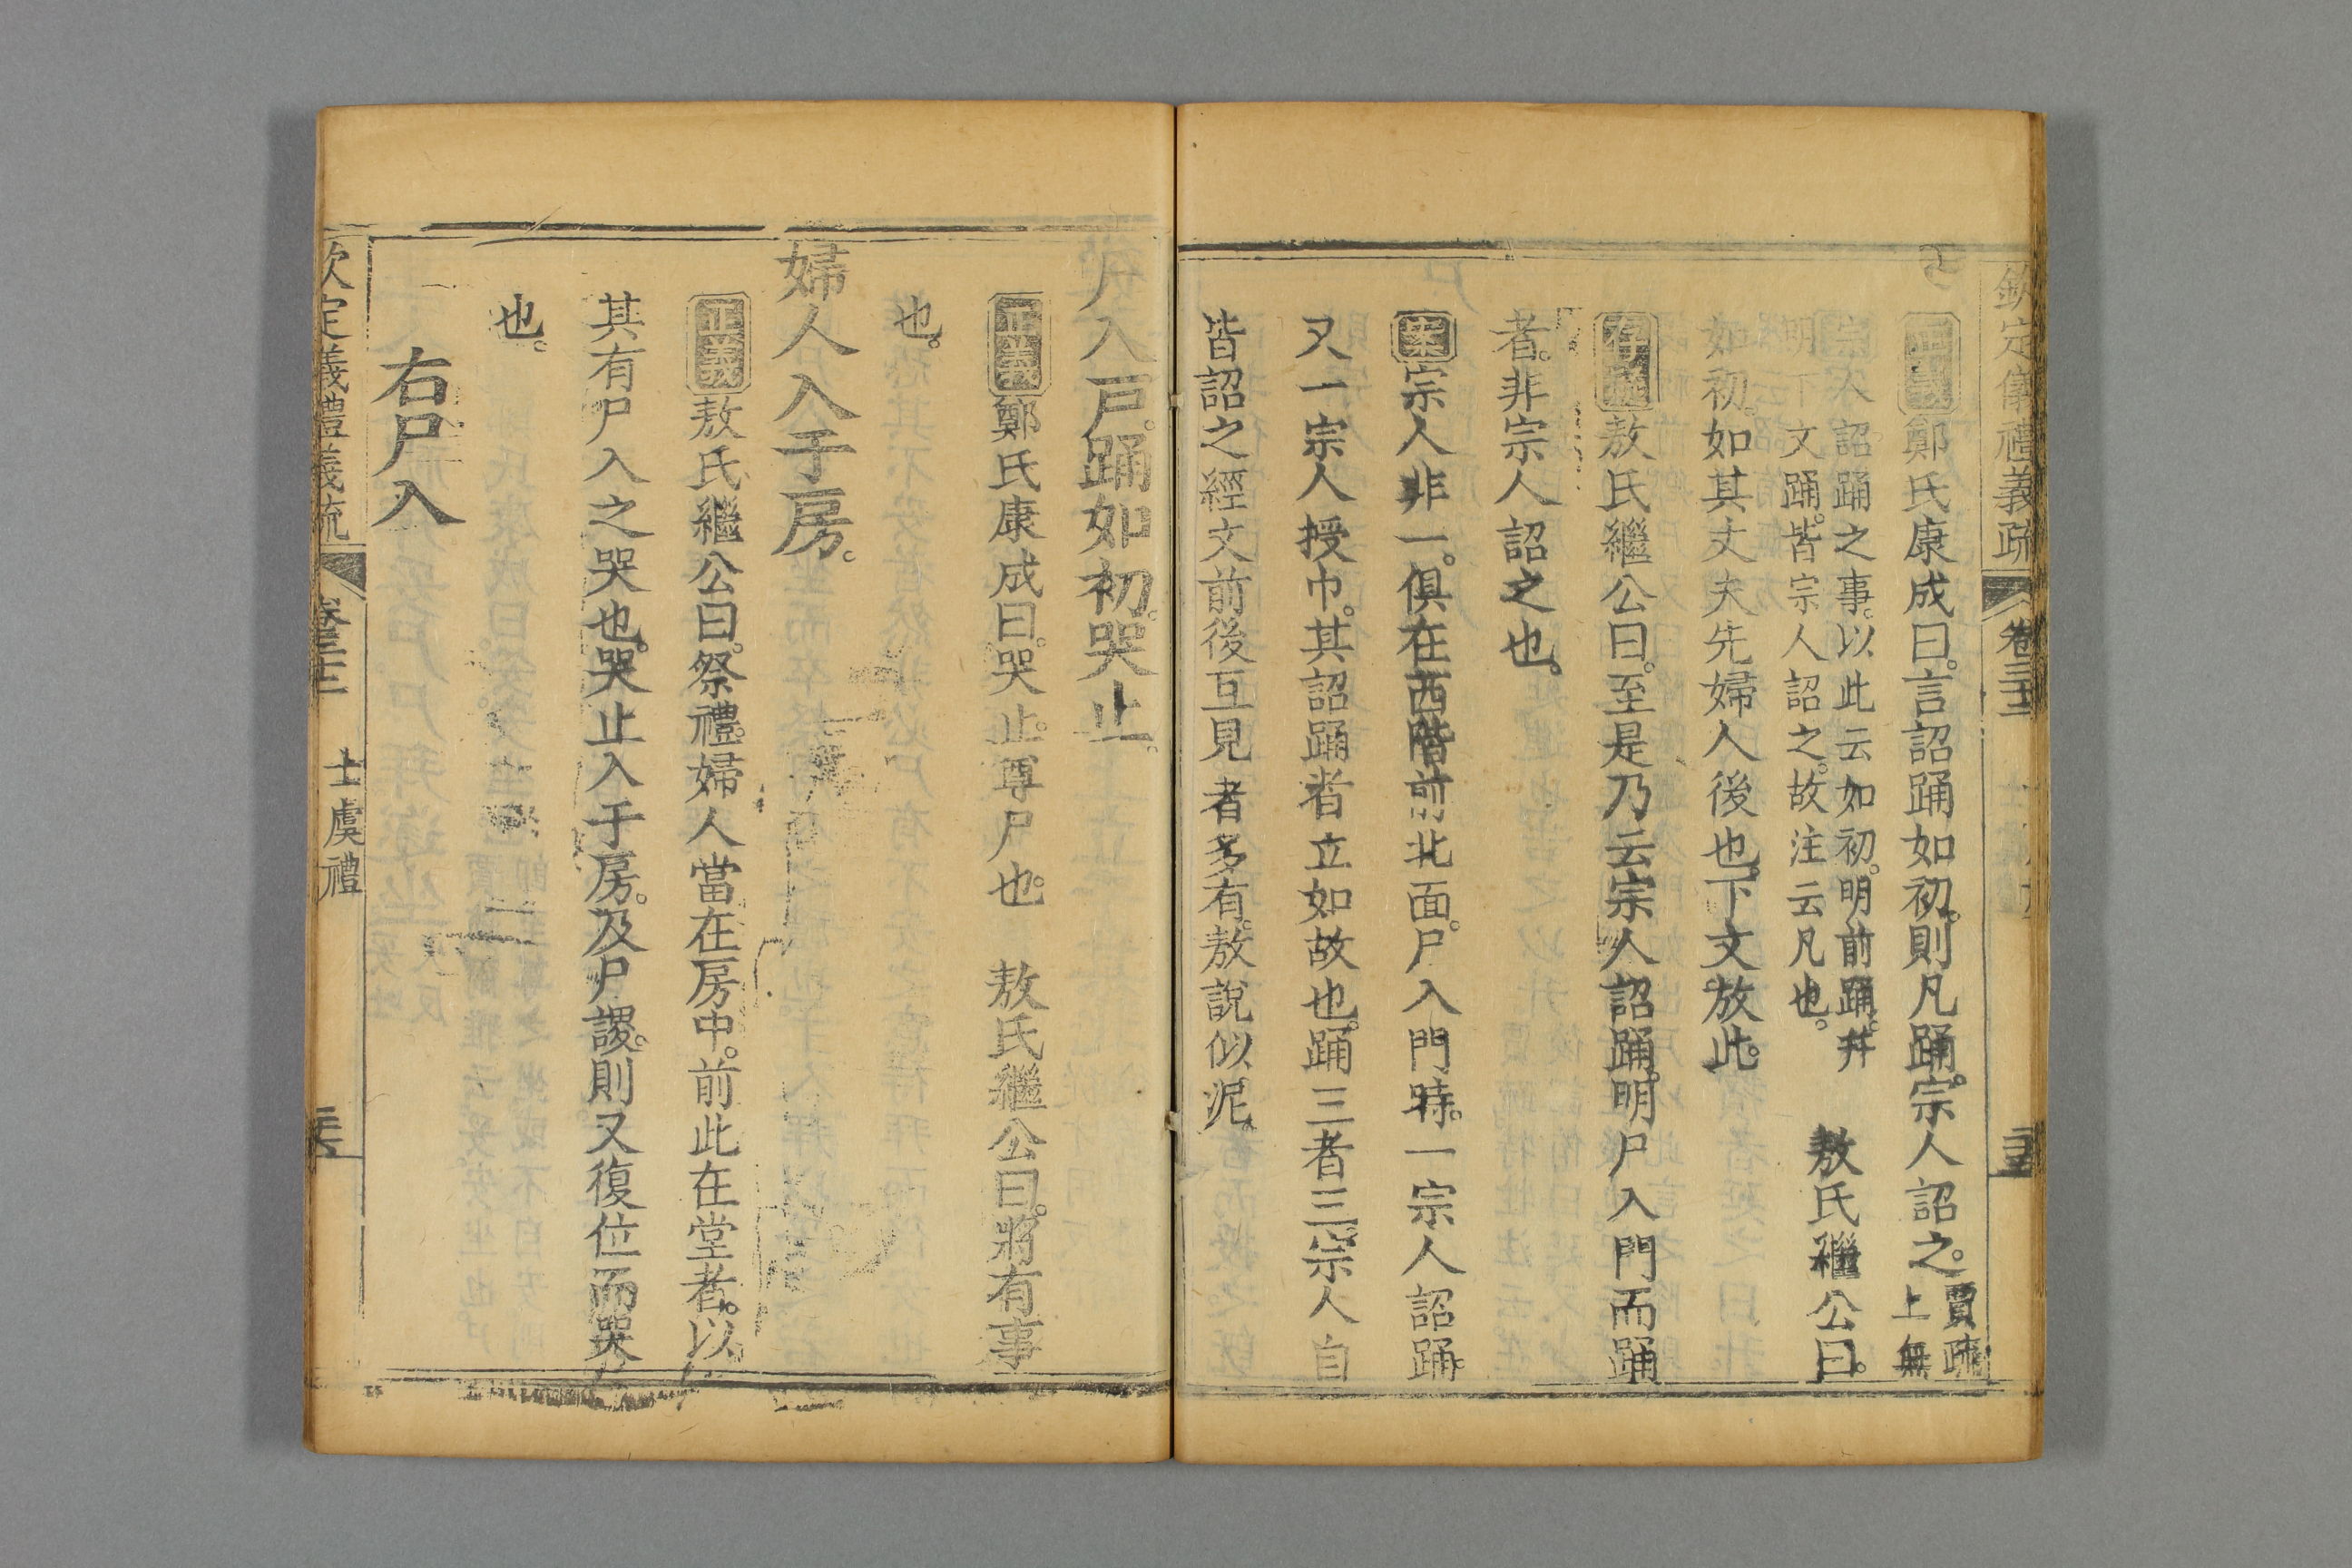 欽定儀禮義疏 卷三十三
正義 鄭氏康成曰。言詔踊如初。則凡踊。宗人詔之。賈疏上無
宗人詔踊之事。以此云如初。明前踊。幷
明下文踊。皆宗人詔之。故注云凡也。 敖氏繼公曰。
如初。如其丈夫先婦人後也。下文放此。
存疑 敖氏繼公曰。至是乃云宗人詔踊。明尸入門而踊
者。非宗人詔之也。
案 宗人非一。俱在西階前北面。尸入門時。一宗人詔踊。
又一宗人授巾。其詔踊者立如故也。踊三者三。宗人自
皆詔之經文前後互見者多有。敖說似泥。
尸入戶。踊如初。哭止。
正義 鄭氏康成曰。哭止。尊尸也。 敖氏繼公曰。將有事
也。
婦人入于房。
正義 敖氏繼公曰。祭禮。婦人當在房中。前此在堂者。以
其有尸入之哭也。哭止入于房。及尸謖。則又復位而哭
也。
右尸入
欽定儀禮義疏 卷三十三 士虞禮